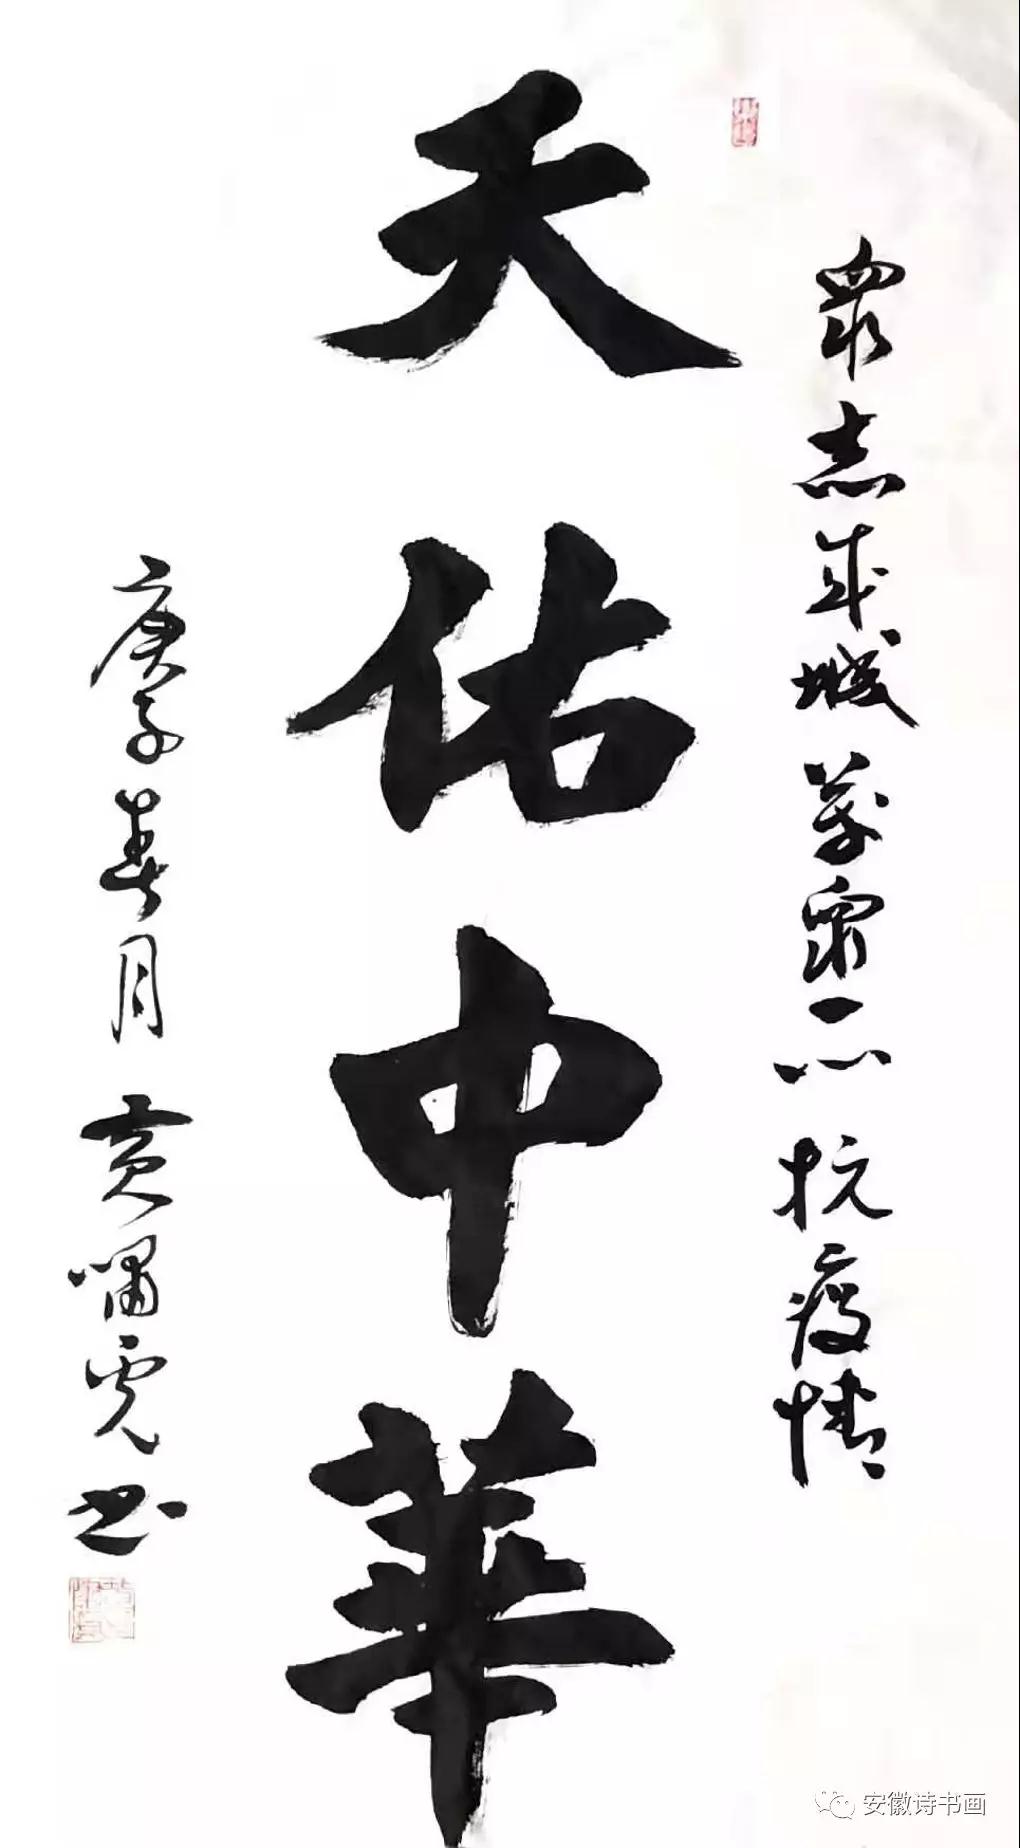 眾志成城萬眾一心抗疫情
天佑中華
庚子春月 黄嘯虎书
安徽诗书画